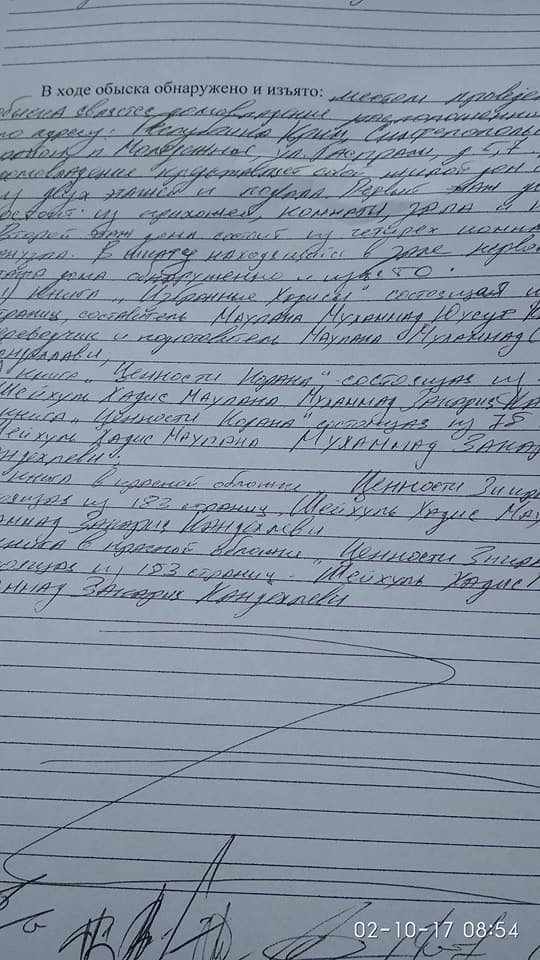 В ходе обыска обнаружено и изъято: местом проведен
обыска является домовладение расположенный
по адресу: Республика Крым, Симферополь
п. Молодежное, ул. д. 5,7
домовладение представляет собой жилой дом с
у двух этажей и подвала. Первый этаж
состоит из прихожей, комнаты, зала и
Второй этаж дома состоит из четырёх комна
санузла. В находящийся в зале перво
этажа дома обнаруженно и изъято:
1) Книга "Избранные Хадисы" состоящая и
страниц, составитель Маулана Мухаммад Юусуф К
переводчик и подготовитель Маулана Мухаммад С
книга "Ценности Корана", состоящая из
Шейхуль Хадис Маулана Мухаммад Закария Ка
книга "Ценности Корана" состоящая из 78
Шейхуль Хадис Маулана Мухаммад Зака
андехлеви".
книга в красной обложке Ценности Зикр
оящая из 183 страниц. Шейхуль Хадис Мау
аммад Закария Кандехлеви
книга в красной обложке "Ценности Зикра
оящая и 183 страниц. "Шейхуль Хадис
аммад Закария Кандехлеви
02-10-17 08:54